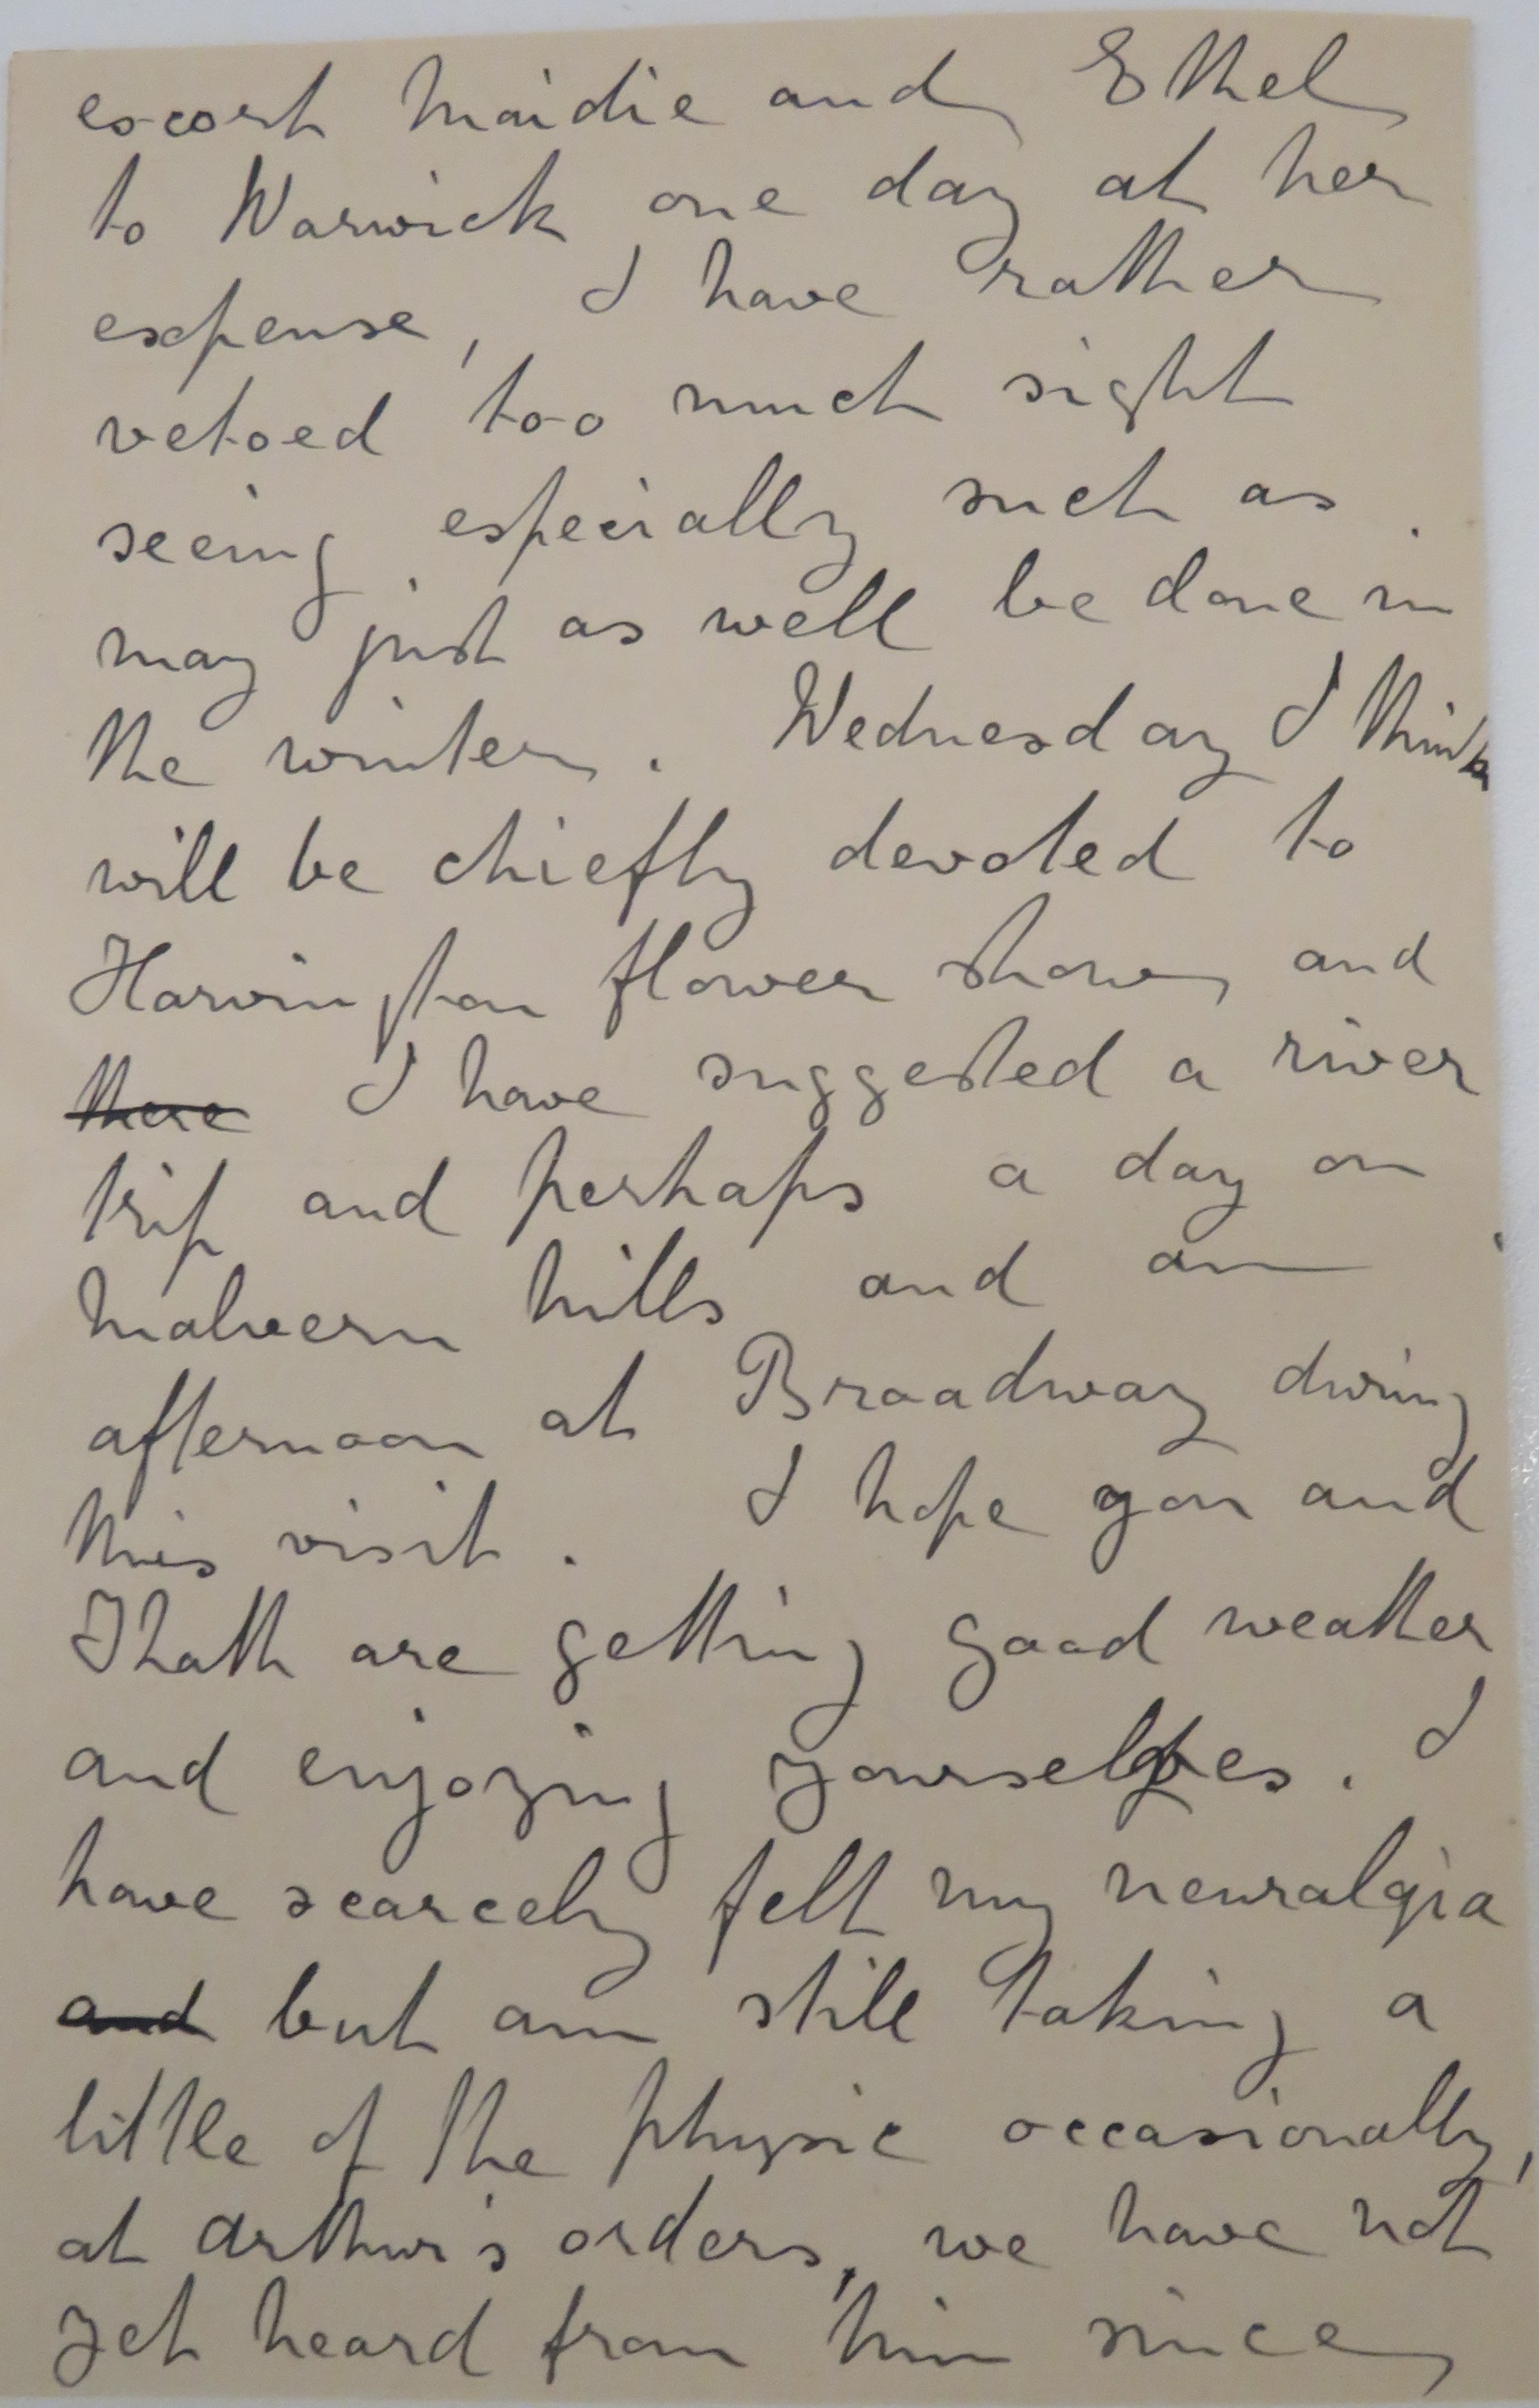 escort Maidie and Ethel
to Warwick one day at her
expense, I have rather
vetoed too much sight
seeing especially such as
may just as well be done in
the winter. Wednesday I think
will be chiefly devoted to
Harvington flower show and
there I have suggested a river
trip and perhaps a day on
Malvern hills and an
afternoon at Broadway during
this visit. I hope you and
Thath are getting good weather
and enjoying yourselves. I
have scarcely felt my neuralgia
and but am still taking a
little of the physic occasionally,
at Arthur's orders, we have not
yet heard from him since